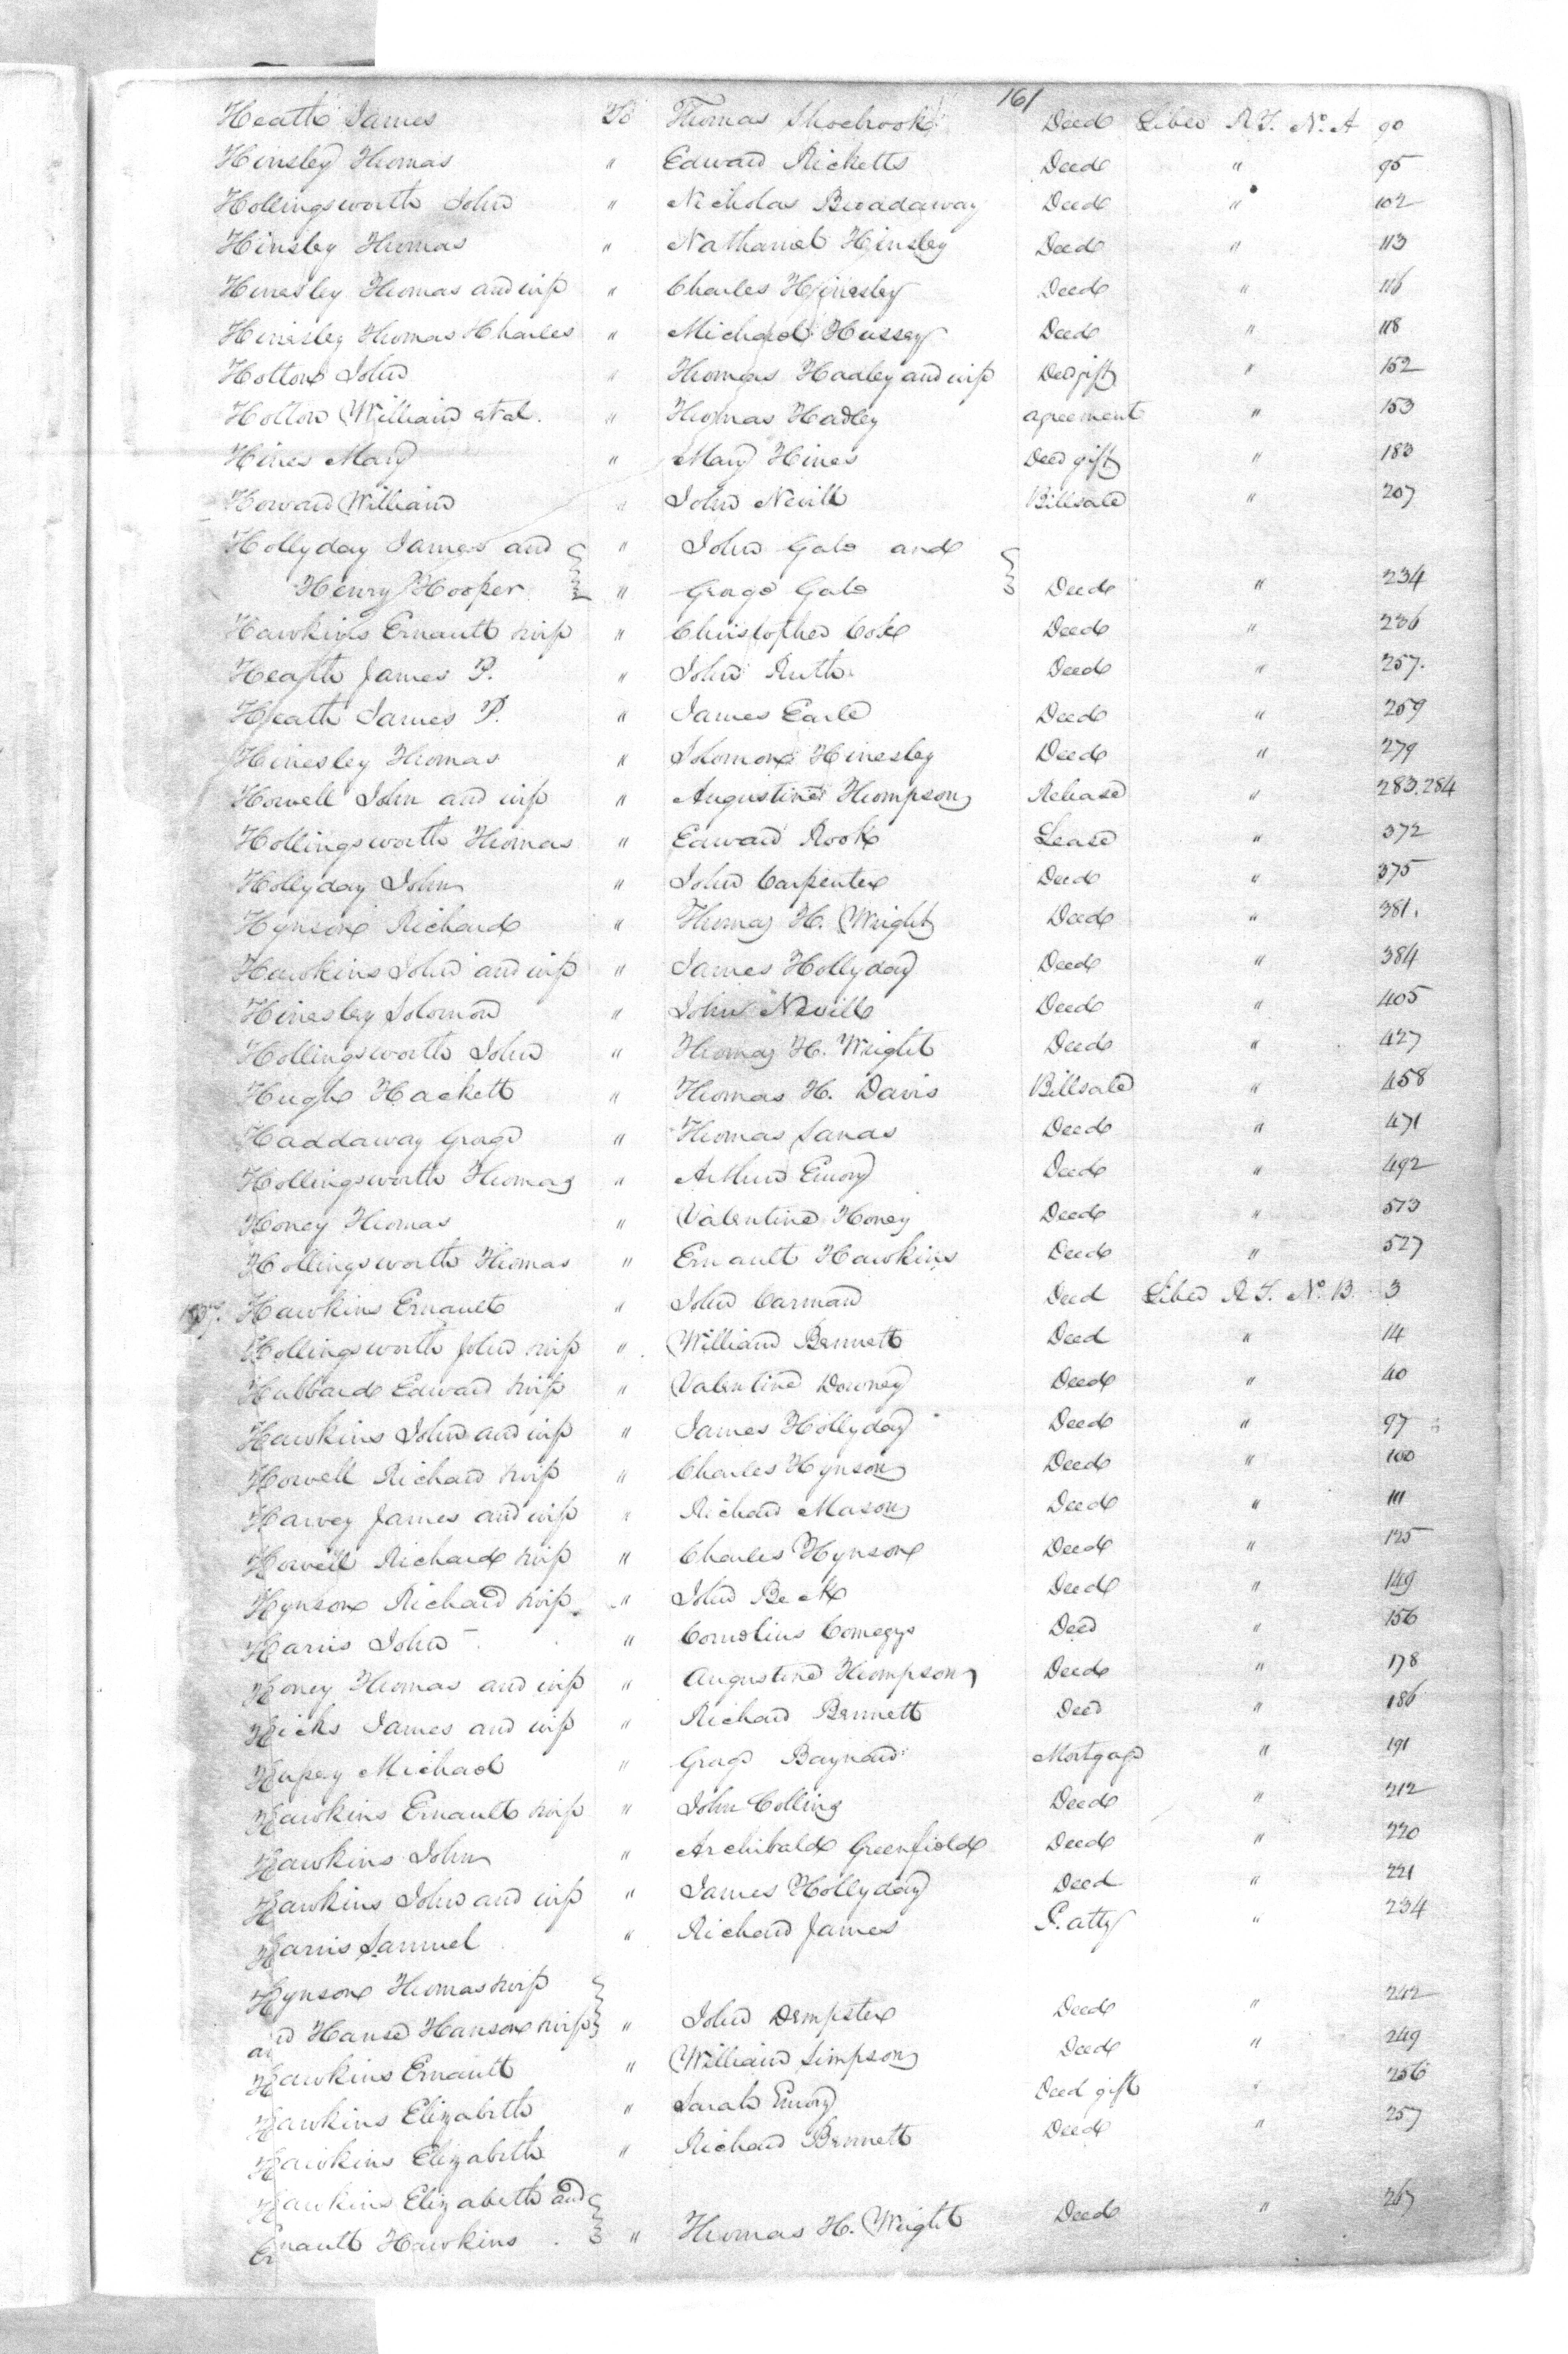 161
Heath James To Thomas Shoebrook Deed Liber R.T. No. A 90
Hinsley Thomas " Edward Ricketts Deed " 95
Hollingsworth John " Nicholas Broadaway Deed " 102
Hinsley Thomas " Nathaniel Hinsley Deed " 113
Hinesley Thomas and wife " Charles Hinesley Deed " 116
Hinesley Thomas & Charles " Michael Hussey Deed " 118
Holton John " Thomas Hadley and wife Deed gift " 152
Holton William et al. " Thomas Hadley agreement " 153
Hines Mary " Mary Hines Deed gift " 183
Howard William " John Nevill Billsale " 207
Hollyday James and " John Gale and
Henry Hooper " George Gale Deed " 234
Hawkins Ernault & wife " Christopher Cox Deed " 236
Heath James P. " John Ruth Deed " 257.
Heath James P. " James Earle Deed " 259
Hinesley Thomas " Solomon Hinesley Deed " 279
Howell John and wife " Augustine Thompson Release " 283.284
Hollingsworth Thomas " Edward Rook Lease " 372
Hollyday John " John Carpenter Deed " 375
Hynson Richard " Thomas H. Wright Deed " 381.
Hawkins John and wife " James Hollyday Deed " 384
Hinesley Solomon " John Nevill Deed " 405
Hollingsworth John " Thomas H. Wright Deed " 427
Hugh Hackett " Thomas H. Davis Billsale " 458
Haddaway George " Thomas Sands Deed " 471
Hollingsworth Thomas " Arthur Emory Deed " 492
Honey Thomas " Valentine Honey Deed " 513
Hollingsworth Thomas " Ernault Hawkins Deed " 527
Hawkins Ernault " John Carman Deed Liber R.T. No. B 3
Hollingsworth John & wife " William Bennett Deed " 14
Hubbard Edward & wife " Valentine Downey Deed " 40
Hawkins John and wife " James Hollyday Deed " 97
Howell Richard & wife " Charles Hynson Deed " 100
Harvey James and wife " Richard Mason Deed " 111
Howell Richard & wife " Charles Hynson Deed " 125
Hynson Richard & wife " John Beck Deed " 149
Harris John " Cornelius Comegys Deed " 156
Honey Thomas and wife " Augustine Thompson Deed " 178
Hicks James and wife " Richard Bennett Deed " 186
Hussey Michael " George Baynard Mortgage " 191
Hawkins Ernault & wife " John Collins Deed " 212
Hawkins John " Archibald Greenfield Deed " 220
Hawkins John and wife " James Hollyday Deed " 221
Harris Samuel " Richard James P. atty " 234
Hynson Thomas & wife
and Hanse Hanson & wife " John Dempster Deed " 242
Hawkins Ernault " William Simpson Deed " 249
Hawkins Elizabeth " Sarah Emory Deed gift " 256
Hawkins Elizabeth " Richard Bennett Deed " 257
Hawkins Elizabeth and
Ernault Hawkins " Thomas H. Wright Deed " 267